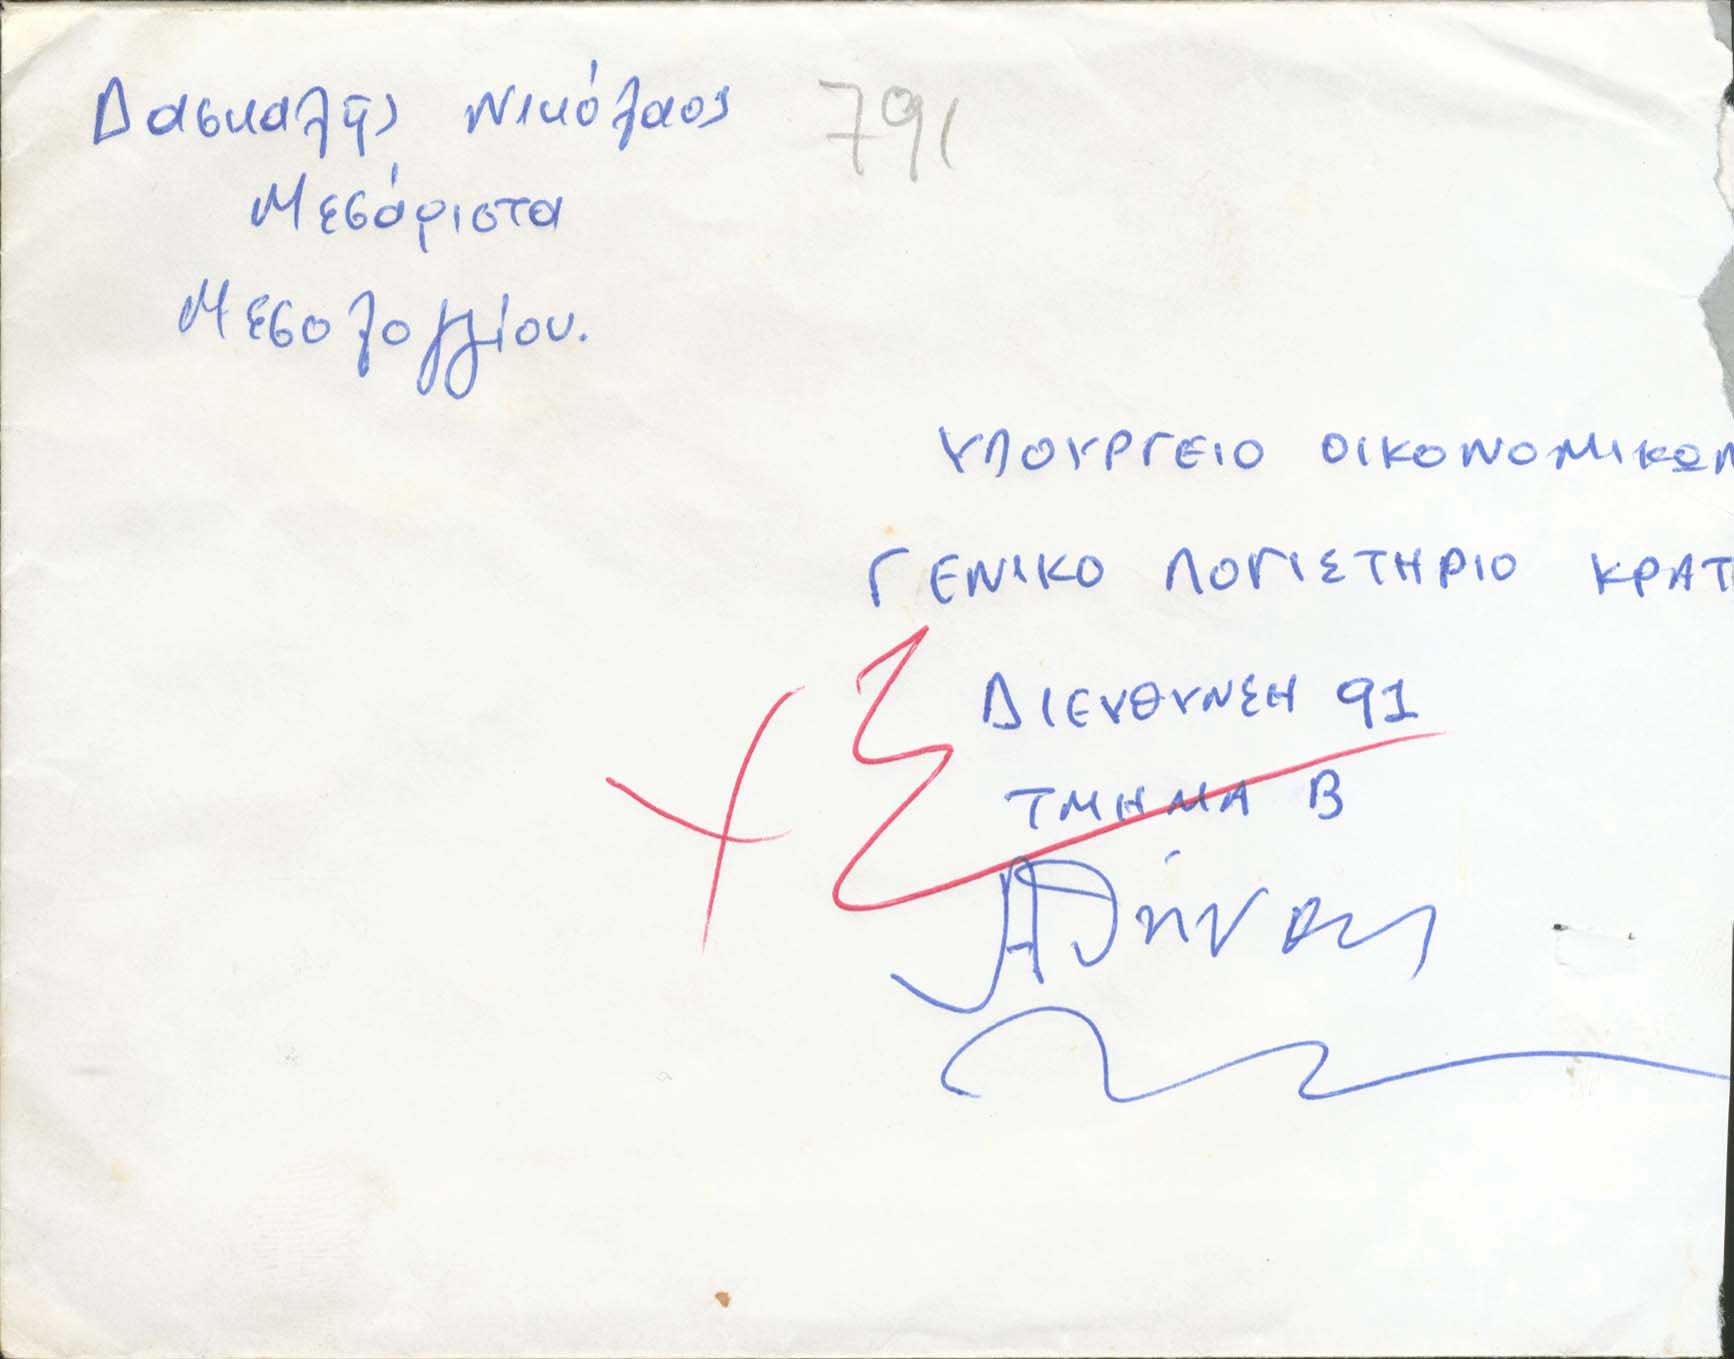 Δασκαλης Νικόλαος
791
Μεσάριστα
Μεσολογγίου.
ΥΠΟΥΡΓΕΙΟ ΟΙΚΟΝΟΜΙΚΩΝ
ΓΕΝΙΚΟ ΛΟΓΙΣΤΗΡΙΟ ΚΡΑΤ
ΔΙΕΥΘΥΝΣΗ 91
ΤΜΗΜΑ Β
Αθήνας